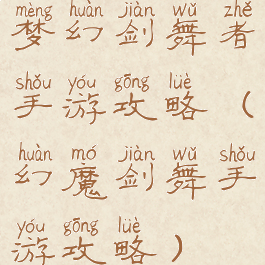 mèng huàn jiàn wǔ zhě
梦幻剑舞者
shǒu yóu gōng lüè
手游攻略（
huàn mó jiàn wǔ shǒu
幻魔剑舞手
yóu gōng lüè
游攻略）